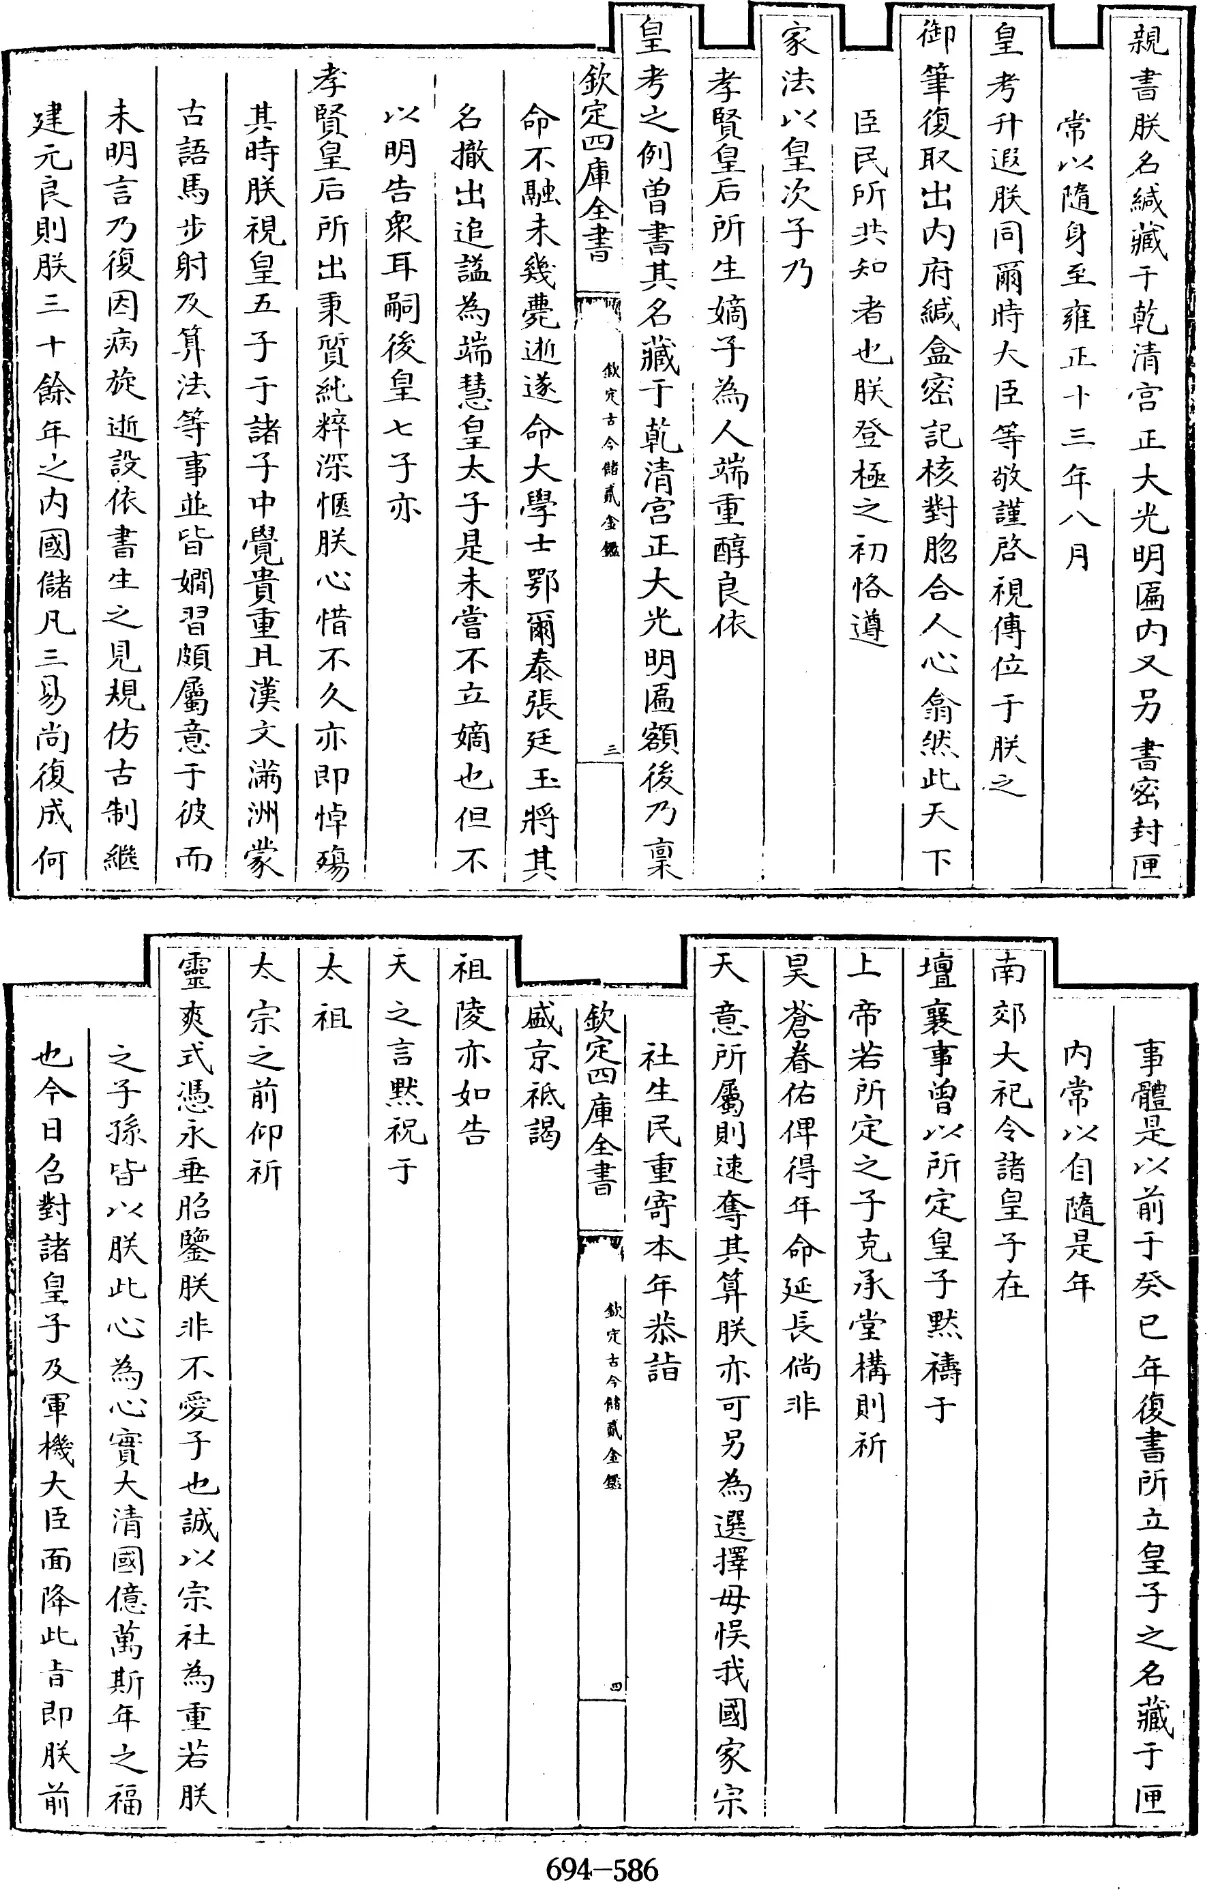 親書朕名緘藏于乾清宫正大光明匾内又另書密封匣
常以隨身至雍正十三年八月
皇考升遐朕同爾時大臣等敬謹啓視傳位于朕之
御筆復取出内府緘盒密記核對脗合人心翕然此天下
臣民所共知者也朕登極之初恪遵
家法以皇次子乃
孝賢皇后所生嫡子為人端重醇良依
皇考之例曽書其名藏于乾清宫正大光明匾額後乃稟
欽定四庫全書
欽定古今儲貳金鑑
三
命不融未幾薨逝遂命大學士鄂爾泰張廷玉將其
名撤出追諡為端慧皇太子是未嘗不立嫡也但不
以明告衆耳嗣後皇七子亦
孝賢皇后所出秉質純粹深愜朕心惜不久亦即悼殤
其時朕視皇五子于諸子中覺貴重且漢文滿洲蒙
古語馬步射及算法等事並皆嫺習頗屬意于彼而
未明言乃復因病旋逝設依書生之見規仿古制繼
建元良則朕三十餘年之内國儲凡三易尚復成何
事體是以前于癸巳年復書所立皇子之名藏于匣
内常以自隨是年
南郊大祀令諸皇子在
壇襄事曾以所定皇子黙禱于
上帝若所定之子克承堂構則祈
昊蒼眷佑俾得年命延長倘非
天意所屬則速奪其算朕亦可另為選擇毋悞我國家宗
社生民重寄本年恭詣
欽定四庫全書
欽定古今儲貳金鑑
四
盛京祇謁
祖陵亦如告
天之言黙祝于
太祖
太宗之前仰祈
靈爽式憑永垂昭鑒朕非不愛子也誠以宗社為重若朕
之子孫皆以朕此心為心實大清國億萬斯年之福
也今日召對諸皇子及軍機大臣面降此旨即朕前
694-586